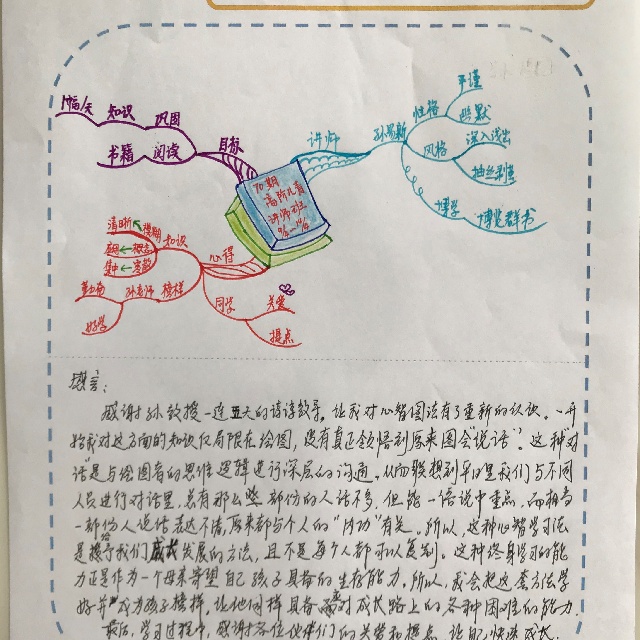 1幅/天 知识 巩固
书籍 阅读 目标
讲师 孙易新
性格 严谨
幽默
风格 深入浅出
抽丝剥茧
博学 博览群书
70期
高阶儿童
讲师班
心得
知识
清晰 模糊
概念
集中 发散
榜样 孙老师 勤奋
好学
同学 关爱
提点
感言:
感谢孙教授一连五天的谆谆教导,让我对心智图法有了重新的认识。一开
始我对这方面的知识仅局限在绘图,没有真正领悟到原来图会“说话”。这种“对
话”是与绘图者的思维逻辑进行深层的沟通。从而联想到平日里我们与不同
人员进行对话里,总有那么些部份的人话不多,但能一语说中重点,而相当
一部份人说话表达不清,原来都与个人的“内功”有关。所以,这种心智学习法
是授予给我们成长发展的方法,且不是每个人都可以复制。这种终身学习的能
力正是作为一个母亲希望自己孩子具备的生存能力,所以,我会把这套方法学
好并成为孩子榜样,让他同样具备面对成长路上的各种困难的能力。
最后,学习过程中,感谢各位伙伴们的关爱和提点,让我快速成长。